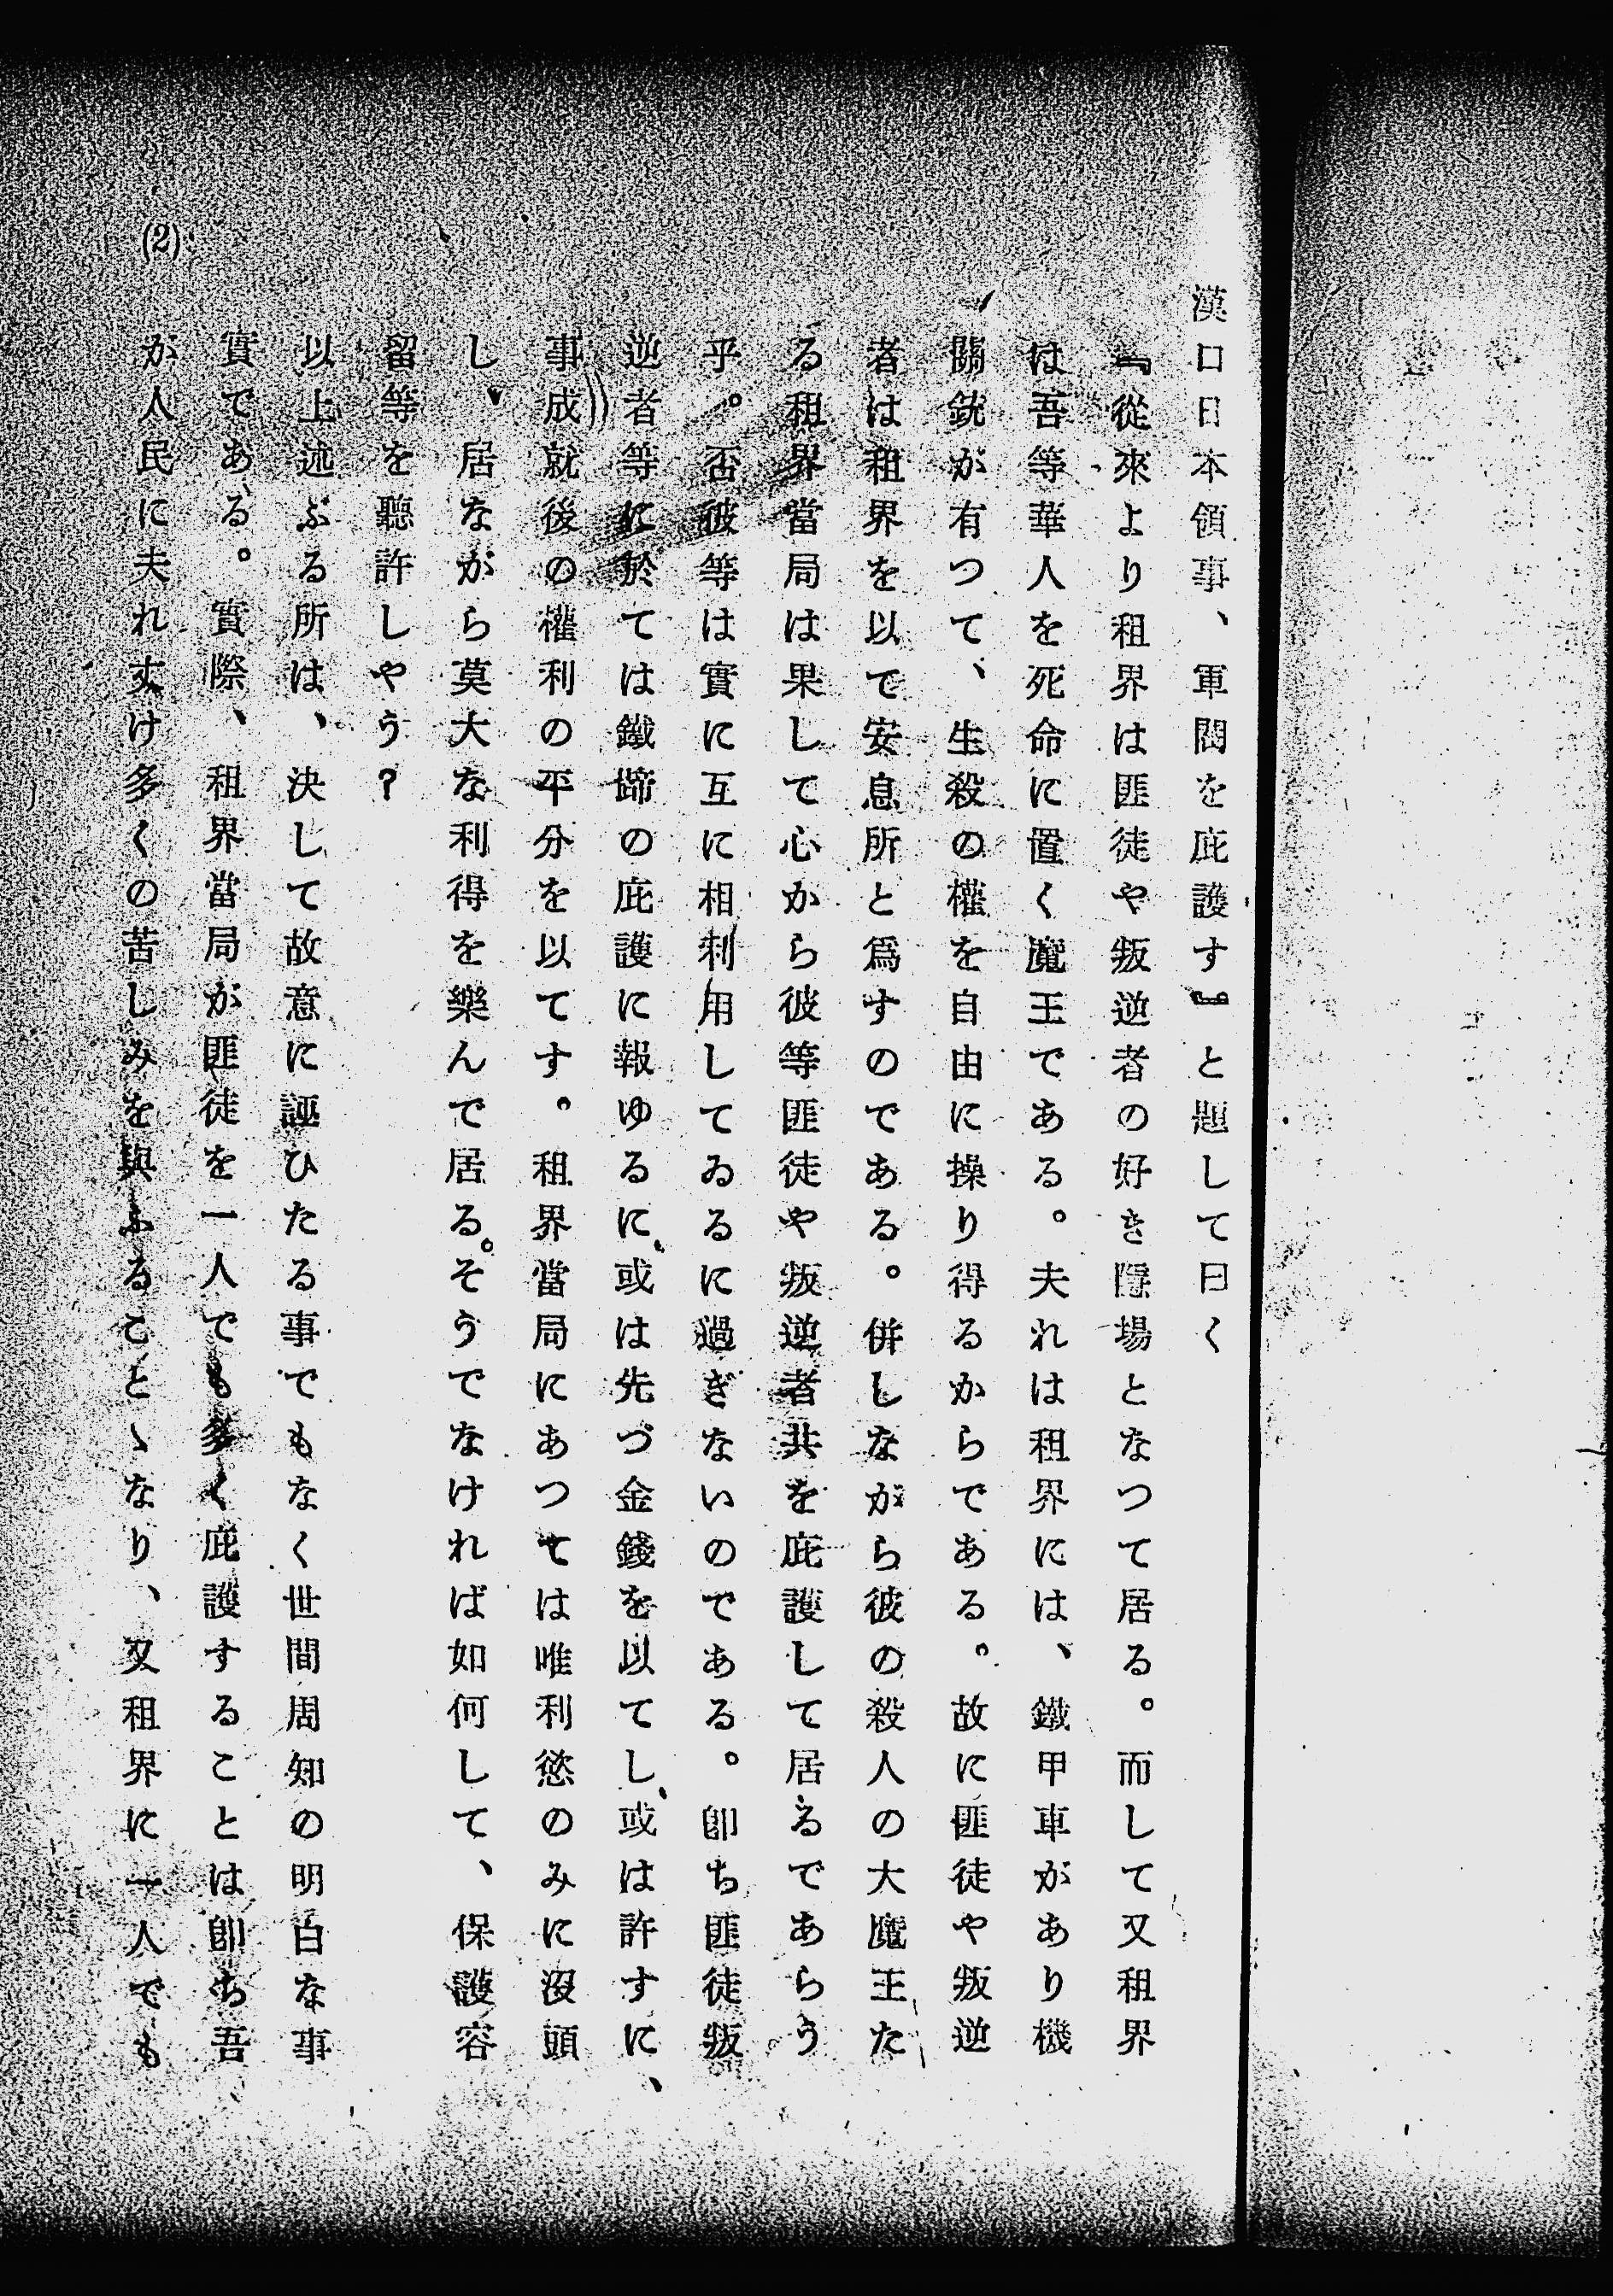 漢口日本領事、軍閥を庇護す』と題して曰く
『從來より租界は匪徒や叛逆者の好き隱場となつて居る。而して又租界
は吾等華人を死命に置く魔王である。夫れは租界には、鐵甲車があり機
關銃が有つて、生殺の權を自由に操り得るからである。故に匪徒や叛逆
者は租界を以て安息所と爲すのである。併しながら彼の殺人の大魔王た
る租界當局は果して心から彼等匪徒や叛逆者共を庇護して居るであらう
乎。否彼等は實に互に相利用してゐるに過ぎないのである。卽ち匪徒叛
逆者等に於ては鐵蹄の庇護に報ゆるに、或は先づ金錢を以てし、或は許すに、
事成就後の權利の平分を以てす。租界當局にあつては唯利慾のみに沒頭
し、居ながら莫大な利得を樂んで居る。そうでなければ如何して、保護容
留等を聽許しやう?
以上述ぶる所は、決して故意に誣ひたる事でもなく世間周知の明白な事
實である。實際、租界當局が匪徒を一人でも多く庇護することは卽ち吾
が人民に夫れ丈け多くの苦しみを與ふることゝなり、又租界に一人でも
(2)